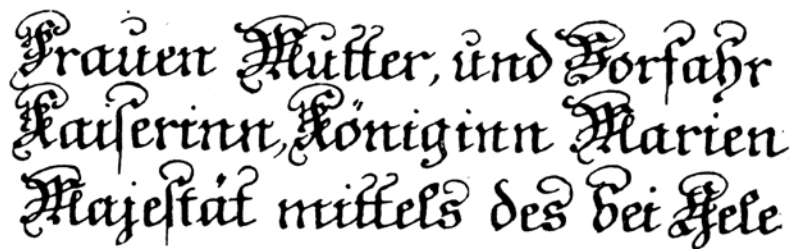 Frauen Mutter, und Vorfahr
Kaiſerinn, Königinn Marien
Majeſtät mittels des bei Gele